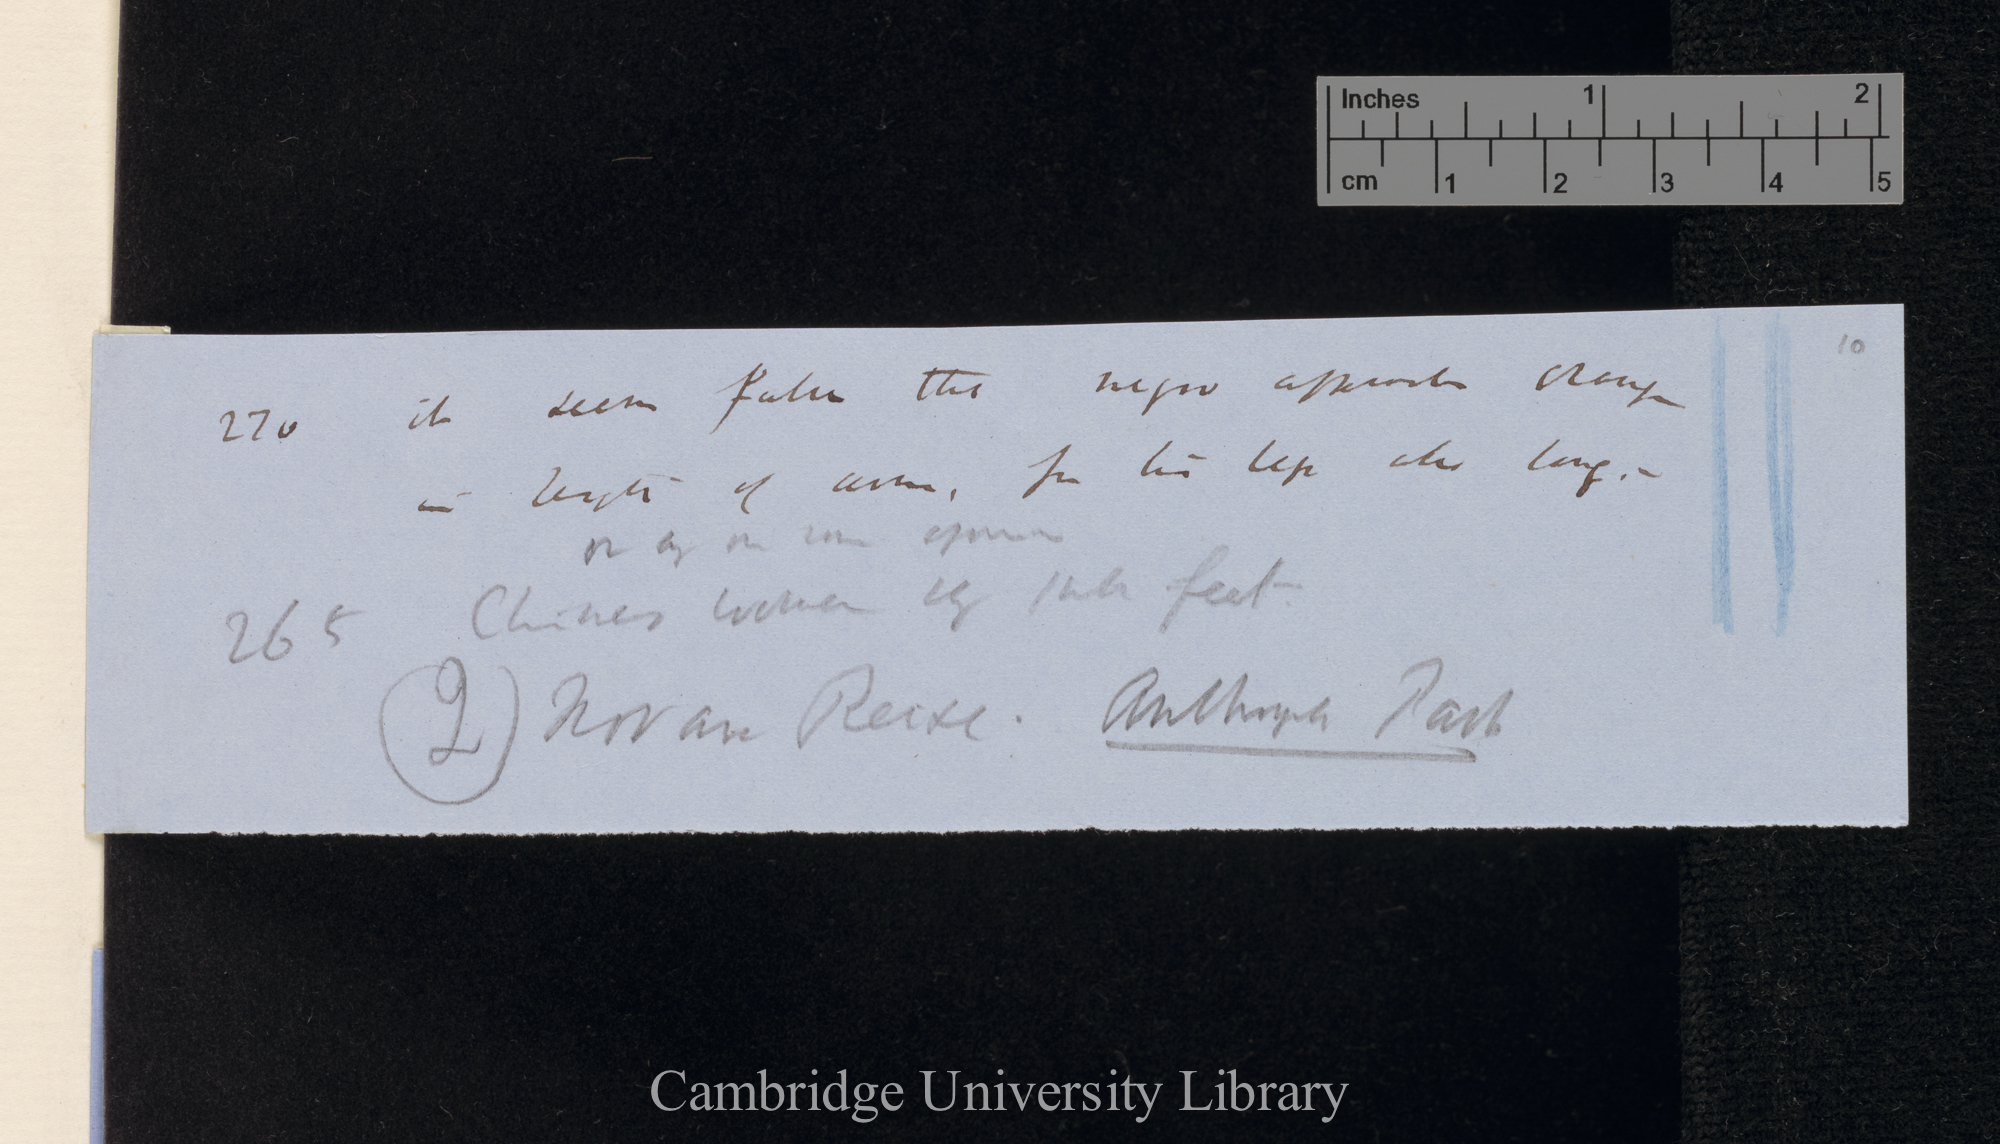 Inches 1 2
cm 1 2 3 4 5
10
270 it seems false that negro approaches orang
in length of arm, for his legs also long. —
or by on
265 Chinese women feet
2) Novara Reise. Anthrop Part
Cambridge University Library